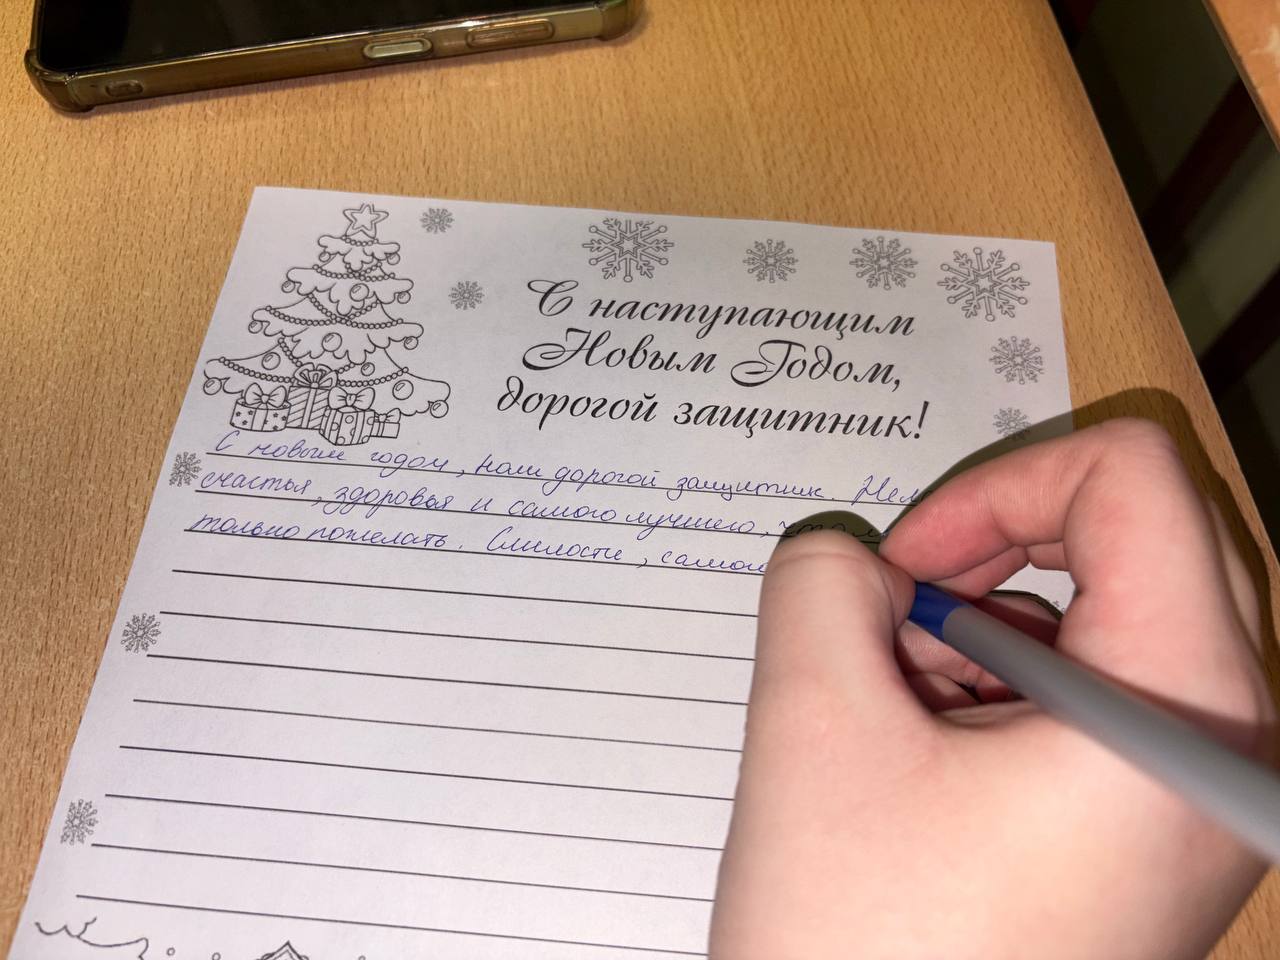 С наступающим
Новым Годом,
дорогой защитник!
С новым годом, наш дорогой защитник.
счастья, здоровья и самого лучшего,
только пожелать. Смелости,